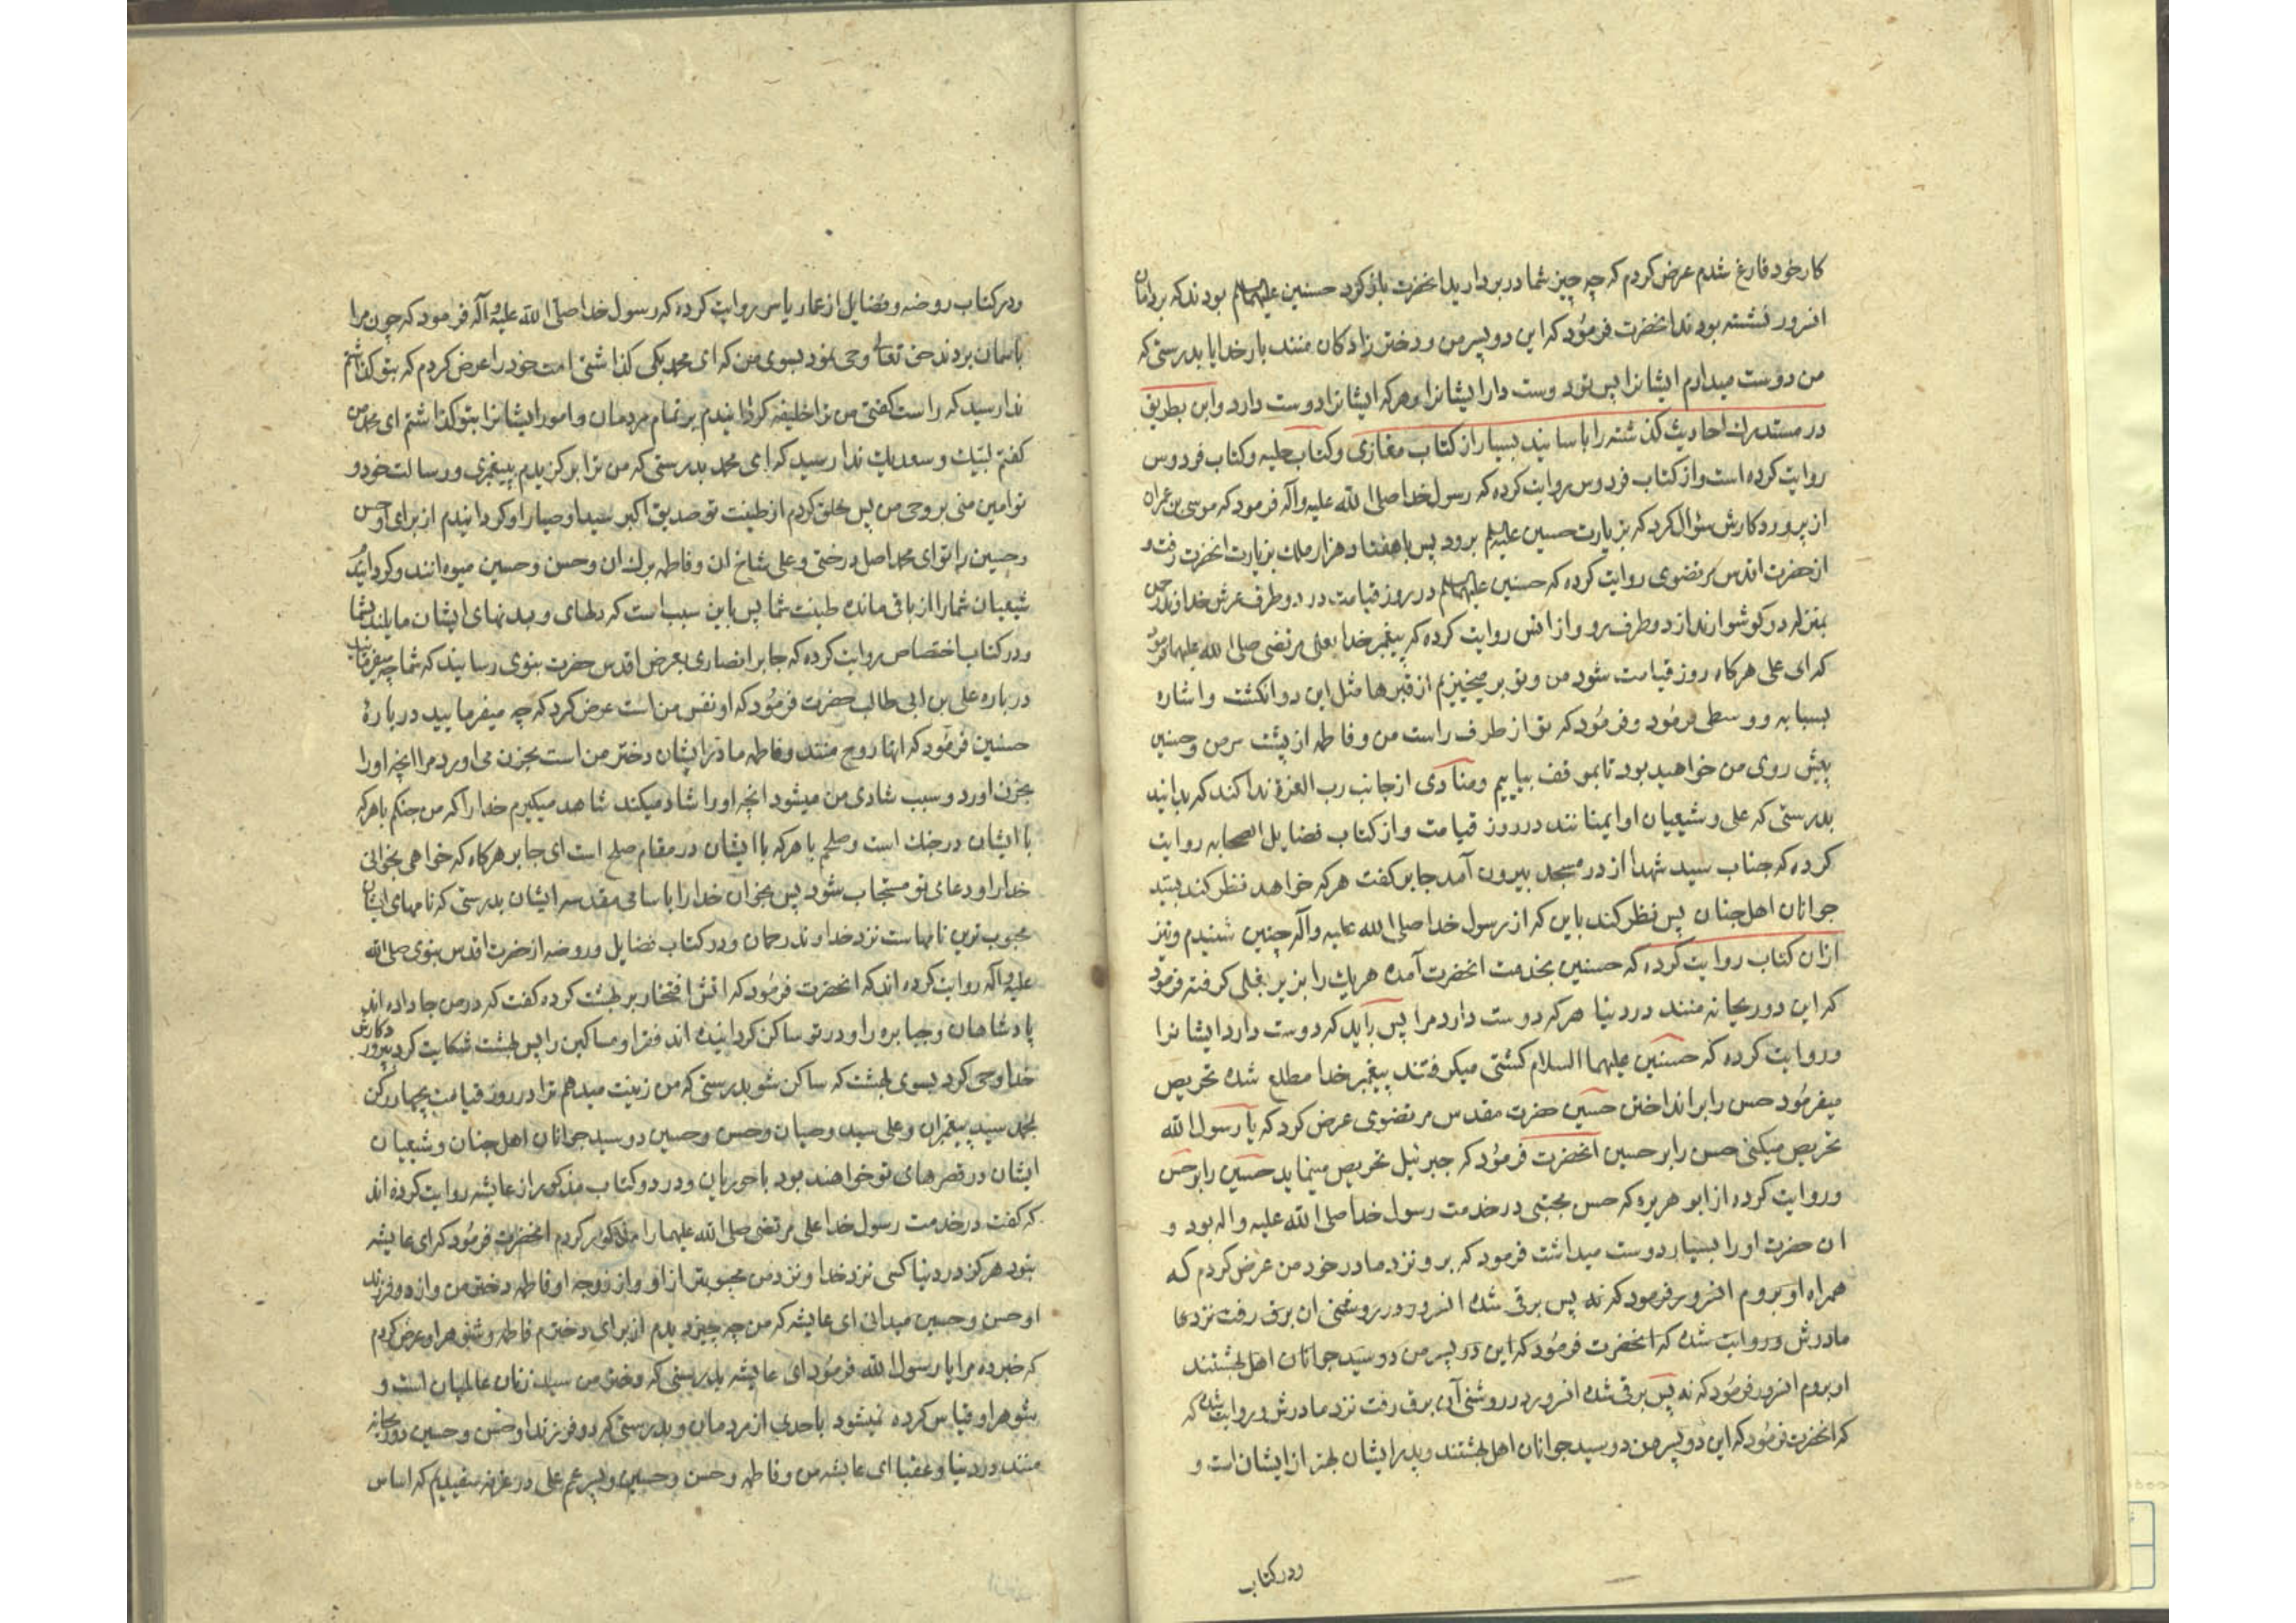 کار خود فارغ شدم عرض کردم که چه چیز شما در بر دارید انحضرت باز کرد حسنین علیهما السلم بودند که بر رانهای
انسرور نشسته بودند انحضرت فرمود که این دو پسر من و دختر زادکان منند بار خدایا بدرستی که
من دوست میدارم ایشانرا پس تو دوست دار ایشانرا و هر که ایشانرا دوست دارد و ابن بطریق
در مستدرک احادیث کذشته را باسانید بسیار از کتاب مغازی و کتاب حلیه و کتاب فردوس
روایت کرده است و از کتاب فردوس روایت کرده که رسول خدا صلی الله علیه و آله فرمود که موسی بن عمران
از پروردکارش سؤال کرد که بزیارت حسین علیه السلم برود پس با هفتاد هزار ملک بزیارت انحضرت رفت و
از حضرت اقدس مرتضوی روایت کرده که حسنین علیهما السلم در روز قیامت در دو طرف عرش خداوند رحمن
بمنزله دو کوشوارند از دو طرف رو و از انس روایت کرده که پیغمبر خدا بعلی مرتضی صلی الله علیهما فرمود
که ای علی هر کاه روز قیامت شود من و تو بر میخیزیم از قبرها مثل این دو انکشت و اشاره
بسبابه و وسطی فرمود و فرمود که تو از طرف راست من و فاطمه از پشت سر من و حسنین
پیش روی من خواهید بود تا بموقف بیاییم و منادی از جانب رب العزة ندا کند که بدانید
بدرستی که علی و شیعیان او ایمنانند در روز قیامت و از کتاب فضایل الصحابه روایت
کرده که جناب سید شهدا از در مسجد بیرون آمد جابر کفت هر که خواهد نظر کند بسید
جوانان اهل جنان پس نظر کند باین که از رسول خدا صلی الله علیه و آله چنین شنیدم و نیز
از ان کتاب روایت کرده که حسنین بخدمت انحضرت آمده هر یک را بزیر بغلی کرفته فرمود
که این دو ریحانه منند در دنیا هر که دوست دارد مرا پس باید که دوست دارد ایشانرا
و روایت کرده که حسنین علیهما السلام کشتی میکرفتند پیغمبر خدا مطلع شده تحریص
میفرمود حسن را بر انداختن حسین حضرت مقدس مرتضوی عرض کرد که یا رسول الله
تحریص میکنی حسن را بر حسین انحضرت فرمود که جبرئیل تحریص مینماید حسین را بر حسن
و روایت کرده از ابو هریره که حسن مجتبی در خدمت رسول خدا صلی الله علیه و اله بود و
ان حضرت او را بسیار دوست میداشت فرمود که برو نزد مادر خود من عرض کردم که
همراه او بروم انسرور فرمود که نه پس برقی شده انسرور در روشنی ان برق رفت نزد
مادرش و روایت شده که انحضرت فرمود که این دو پسر من دو سید جوانان اهل بهشتند
او بروم انسرور فرمود که نه پس برقی شده انسرور در روشنی آن برق رفت نزد مادرش و روایت شده که
که انحضرت فرمود که این دو پسر من دو سید جوانان اهل بهشتند و پدر ایشان بهتر از ایشان است و
ودر کتاب
ودر کتاب روضه و فضایل از عمار یاسر روایت کرده که رسول خدا صلی الله علیه و آله فرمود که چون مرا
باسمان بردند حق تعالی وحی نمود بسوی من که ای محمد بکی کذاشتی امت خود را عرض کردم که بتو کذاشتم
ندا رسید که راست کفتی من ترا خلیفه کردانیدم بر تمام مردمان و امور ایشانرا بتو کذاشتم ای محمد من
کفتم لبیک و سعدیک ندا رسید که ای محمد بدرستی که من ترا بر کزیدم پیغمبری و رسالت خود و
تو امین منی بر وحی من پس خلق کردم از طینت تو صدیق اکبر سید اوصیا را و کردانیدم از برای او حسن
و حسین را تو ای محمد اصل درختی و علی شاخ ان و فاطمه برک ان و حسن و حسین میوه انند و کردانیدم
شیعیان شما را از باقی مانده طینت شما پس باین سبب است که دلهای و بدنهای ایشان مایلند بشما
و در کتاب اختصاص روایت کرده که جابر انصاری بعرض اقدس حضرت نبوی رسانید که شما چه میفرمایید
درباره علی بن ابی طالب حضرت فرمود که او نفس من است عرض کرد که چه میفرمایید درباره
حسنین فرمود که انها روح منند و فاطمه مادر ایشان دختر من است بحزن می اورد مرا انچه او را
بحزن اورد و سبب شادی من میشود انچه او را شاد میکند شاهد میکیرم خدا را که من جنکم با هر که
با ایشان در جنک است و صلحم با هر که با ایشان در مقام صلح است ای جابر هر کاه که خواهی بخوانی
خدا را و دعای تو مستجاب شود پس بخوان خدا را باسامی مقدسه ایشان بدرستی که نامهای ایشان
محبوب ترین نامهاست نزد خداوند رحمان و در کتاب فضایل و روضه از حضرت اقدس نبوی صلی الله
علیه و آله روایت کرده اند که انحضرت فرمود که اتش افتخار بر بهشت کرده کفت که در من جا داده اند
پادشاهان و جبابره را و در تو ساکن کردانیده اند فقرا و مساکین را پس بهشت شکایت کرد بپروردکارش
خدا وحی کرد بسوی بهشت که ساکن شو بدرستی که من زینت میدهم ترا در روز قیامت بچهار رکن
بمحمد سید پیغمبران و علی سید وصیان و حسن و حسین دو سید جوانان اهل جنان و شیعیان
ایشان در قصرهای تو خواهند بود با حوریان و در دو کتاب مذکور از عایشه روایت کرده اند
که کفت در خدمت رسول خدا علی مرتضی صلی الله علیهما را مذکور کردم انحضرت فرمود که ای عایشه
نبود هرکز در دنیا کسی نزد خدا و نزد من محبوبتر از او و از زوجه او فاطمه دختر من و از دو فرزند
او حسن و حسین میدانی ای عایشه که من چه چیز دیدم از برای دخترم فاطمه و شوهر او عرض کردم
که خبر ده مرا یا رسول الله فرمود ای عایشه بدرستی که دختر من سید زنان عالمیان است و
شوهر او قیاس کرده نمیشود باحدی از مردمان و بدرستی که دو فرزند او حسن و حسین دو ریحانه
منند در دنیا و عقبا ای عایشه من و فاطمه و حسن و حسین و پسر عم علی در غرفه سفیدیم که اساس